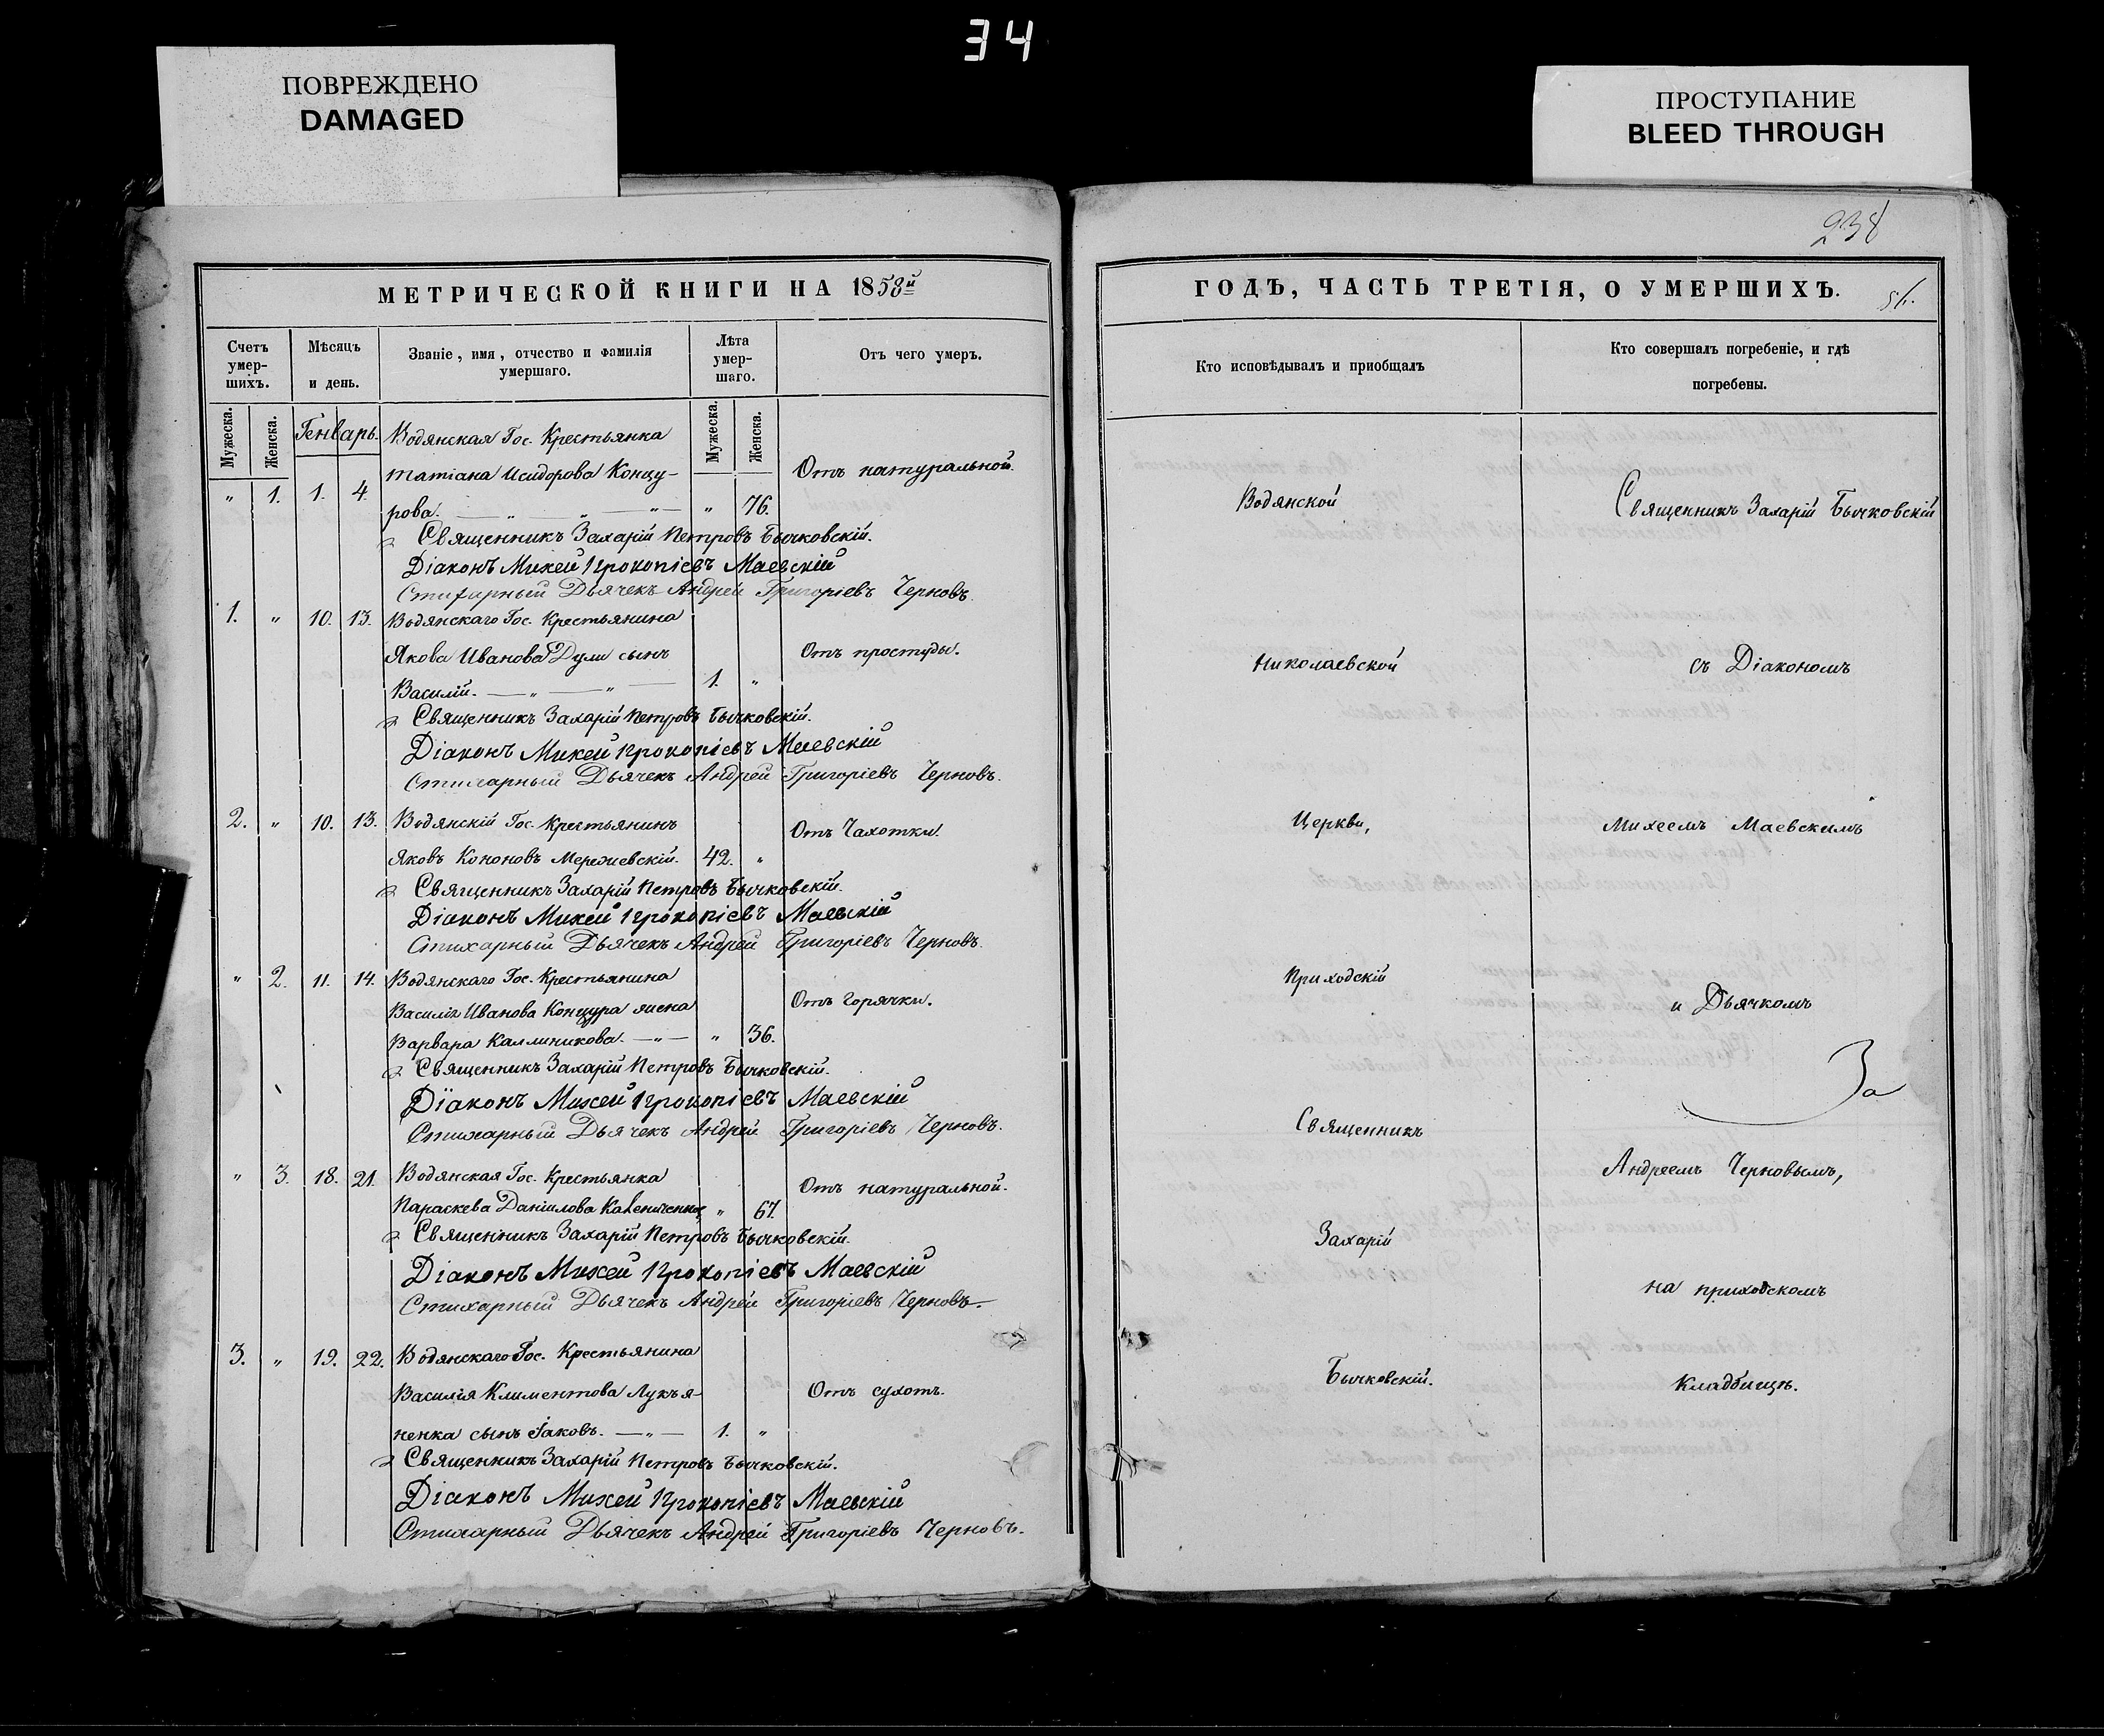 34
ПОВРЕЖДЕНО
DAMAGED
ПРОСТУПАНИЕ
BLEED THROUGH
238
МЕТРИЧЕСКОЙ КНИГИ НА 1858й
Счетъ умер-шихъ.
Мѣсяцъ и день.
Званіе, имя, отчество и фамилія умершаго.
Лѣта умер-шаго.
Отъ чего умеръ.
Мужеска.
Женска.
Генварь.
Мужеска.
Женска.
Водянская Гос. Крестьянка
Татіана Исидорова Концу-
Отъ натуральной.
" 1. 1. 4. рова. — " — " — " — " 76.
Священникъ Захарій Петровъ Бычковскій.
Діаконъ Михей Прокопіевъ Маевскій
Стихарный Дьячекъ Андрей Григоріевъ Черновъ.
1. " 10. 13. Водянскаго Гос. Крестьянина
Якова Иванова Дули сынъ Отъ простуды.
Василій. — " — " — 1. "
Священникъ Захарій Петровъ Бычковскій.
Діаконъ Михей Прокопіевъ Маевскій
Стихарный Дьячекъ Андрей Григоріевъ Черновъ.
2. " 10. 13. Водянскій Гос. Крестьянинъ Отъ Чахотки.
Яковъ Кононовъ 42. "
Священникъ Захарій Петровъ Бычковскій.
Діаконъ Михей Прокопіевъ Маевскій
Стихарный Дьячекъ Андрей Григоріевъ Черновъ.
" 2. 11. 14. Водянскаго Гос. Крестьянина
Василія Иванова Концура жена Отъ горячки.
Варвара Каллиникова. — " — " 36.
Священникъ Захарій Петровъ Бычковскій.
Діаконъ Михей Прокопіевъ Маевскій
Стихарный Дьячекъ Андрей Григоріевъ Черновъ.
" 3. 18. 21. Водянская Гос. Крестьянка Отъ натуральной.
Параскева Даніилова " 67.
Священникъ Захарій Петровъ Бычковскій.
Діаконъ Михей Прокопіевъ Маевскій
Стихарный Дьячекъ Андрей Григоріевъ Черновъ.
3. " 19. 22. Водянскаго Гос. Крестьянина
Василія Климентова Лукья- Отъ сухотъ.
ненка сынъ Іаковъ. — " — 1. "
Священникъ Захарій Петровъ Бычковскій.
Діаконъ Михей Прокопіевъ Маевскій
Стихарный Дьячекъ Андрей Григоріевъ Черновъ.
ГОДЪ, ЧАСТЬ ТРЕТІЯ, О УМЕРШИХЪ.
Кто исповѣдывалъ и приобщалъ
Кто совершалъ погребеніе, и гдѣ погребены.
Водянской
Николаевской
Церкви,
Приходскій
Священникъ
Захарій
Бычковскій.
Священникъ Захарій Бычковскій
съ Діакономъ
Михеемъ Маевскимъ
и Дьячкомъ
За
Андреемъ Черновымъ,
на приходскомъ
Кладбищѣ.